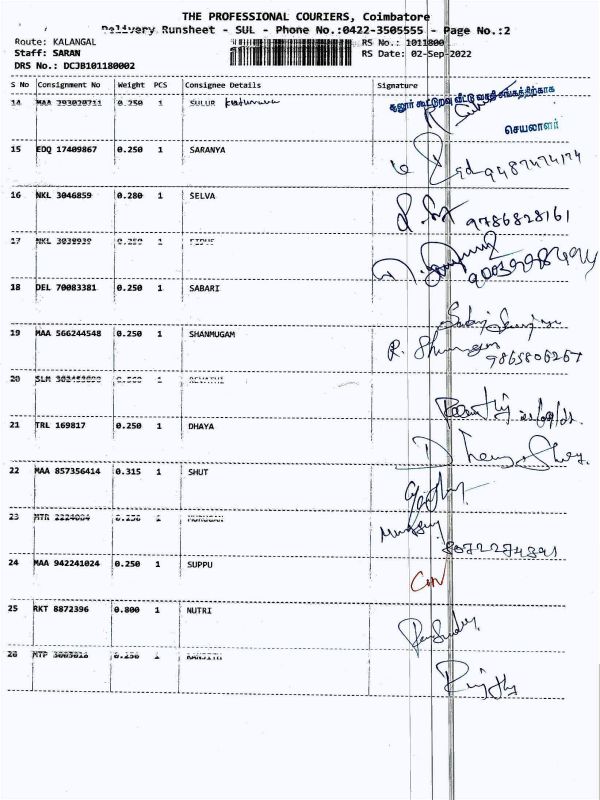 THE PROFESSIONAL COURIERS, Coimbatore
Delivery Runsheet - SUL - Phone No.:0422-3505555 - Page No.:2
Route: KALANGAL RS No.: 1011800
Staff: SARAN RS Date: 02-Sep-2022
DRS No.: DCJB101180002
S No Consignment No Weight PCS Consignee Details Signature
சூலூர் கூட்டுறவு வீட்டு வசதி சங்கத்திற்காக
14 MAA 0.250 1 SULUR
செயலாளர்
15 EDQ 17409867 0.250 1 SARANYA
9487474174
16 NKL 3046859 0.280 1 SELVA 9786828161
17 NKL 1
18 DEL 70083381 0.250 1 SABARI
19 MAA 566244548 0.250 1 SHANMUGAM
R. 9865806267
20 SLM 1 REVATHI
21 TRL 169817 0.250 1 DHAYA
22 MAA 857356414 0.315 1 SHUT
23 MTR 1 MURUGAN
8072274391
24 MAA 942241024 0.250 1 SUPPU
25 RKT 8872396 0.800 1 NUTRI
26 MTP 0.250 1 RANJITH